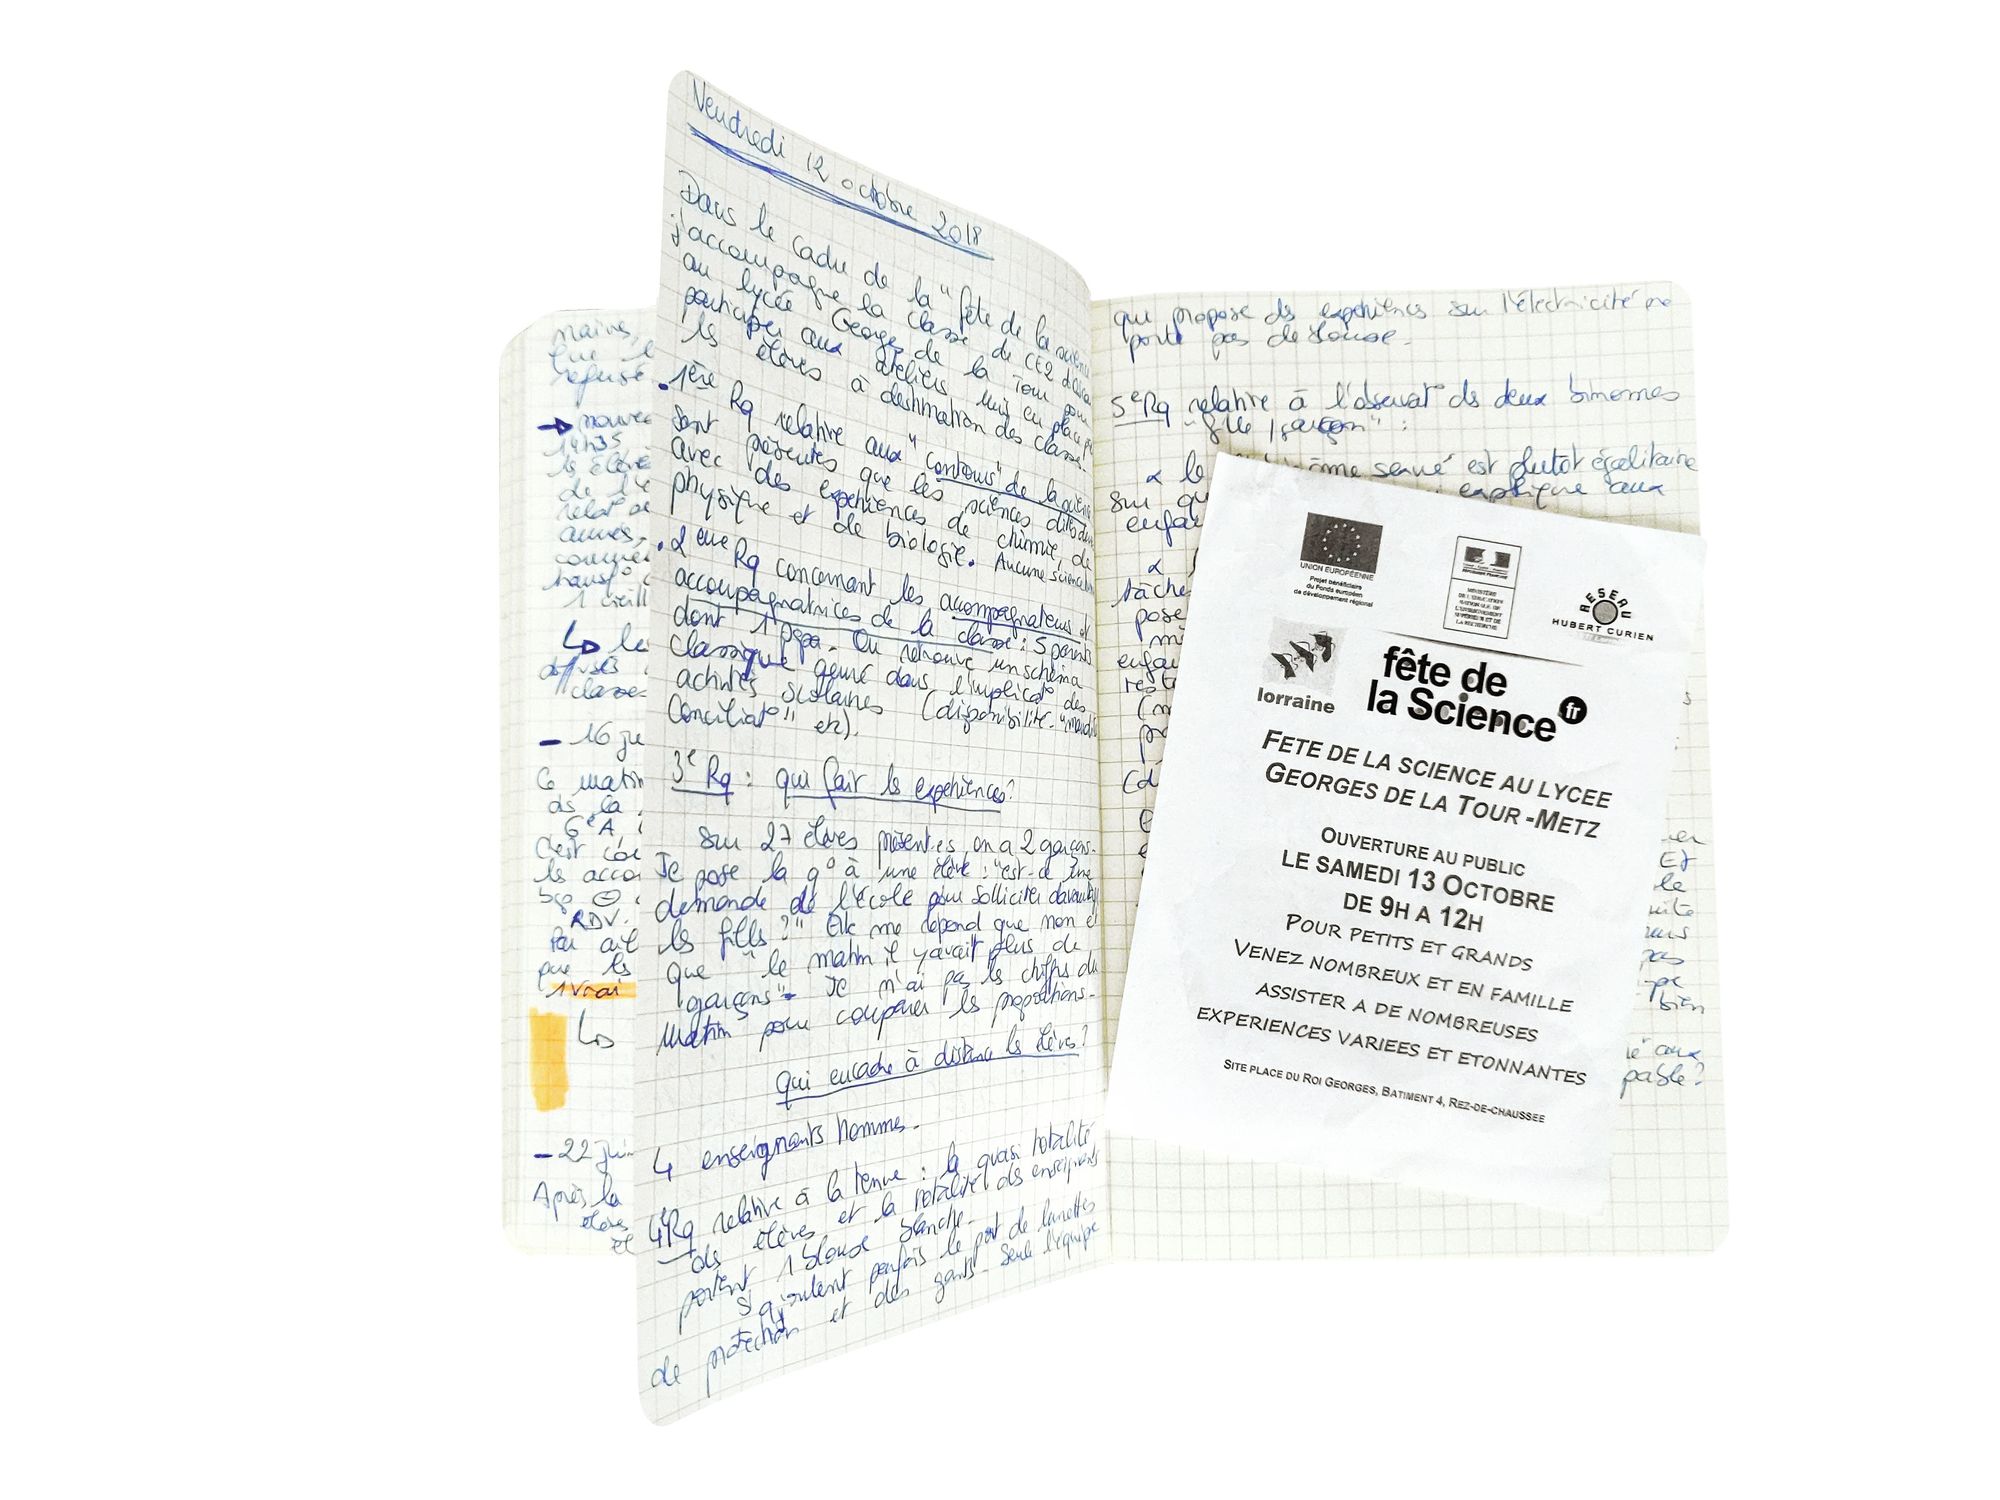 maires,
refusé
nouve
14h35
les élève
de l'é
relat° de
comme
transf°
1 vieill
↳ les
diffusés
classe
- 16 ju
Ce matin
ds la
6eA,
C'est
les acco
RDV.
Par ail
que les
1 vrai
↳
- 22 juin
Après la
élèves
et
Vendredi 12 octobre 2018
Dans le cadre de la "fête de la science
j'accompagne la classe de CE2
au lycée Georges de la Tour pour
participer aux ateliers mis en place par
les élèves à destination des classes.
• 1ère Rq relative aux "contours" de la science
sont présentes que les sciences dites dures
avec des expériences de chimie, de
physique et de biologie. Aucune science
• 2ème Rq concernant les accompagnateurs et
accompagnatrices de la classe : 5 parents
dont 1 papa. On retrouve un schéma
classique genré dans l'implicat° des
activités scolaires (disponibilité - "mandat
conciliat°" etc).
3e Rq : qui fait les expériences ?
Sur 27 élèves présent.es, on a 2 garçons.
Je pose la q° à une élève : "est-ce une
demande de l'école pour solliciter davantage
les filles ?" Elle me répond que non et
que "le matin il y avait plus de
garçons". Je n'ai pas les chiffres du
matin pour comparer les proportions.
Qui encadre à distance les élèves ?
4 enseignants hommes.
4e Rq relative à la tenue : la quasi totalité
des élèves et la totalité des enseignants
portent 1 blouse blanche.
S'ajoutent parfois le port de lunettes
de protection et des gants. Seule l'équipe
qui propose des expériences sur l'électricité ne
porte pas de blouse.
5e Rq relative à l'observat° de deux binômes
"fille / garçon" :
α le binôme est plutôt égalitaire
sur qu explique aux
enfa
α
tâche
pose
enfa
rest
Et
le
pas
bien
aux
UNION EUROPÉENNE
Projet bénéficiaire
du Fonds européen
de développement régional
MINISTÈRE
DE L'ÉDUCATION
NATIONALE, DE
L'ENSEIGNEMENT
SUPÉRIEUR ET DE
LA RECHERCHE
RESEAU
HUBERT CURIEN
lorraine
fête de
la Science fr
FETE DE LA SCIENCE AU LYCEE
GEORGES DE LA TOUR -METZ
OUVERTURE AU PUBLIC
LE SAMEDI 13 OCTOBRE
DE 9H A 12H
POUR PETITS ET GRANDS
VENEZ NOMBREUX ET EN FAMILLE
ASSISTER A DE NOMBREUSES
EXPERIENCES VARIEES ET ETONNANTES
SITE PLACE DU ROI GEORGES, BATIMENT 4, REZ-DE-CHAUSSEE